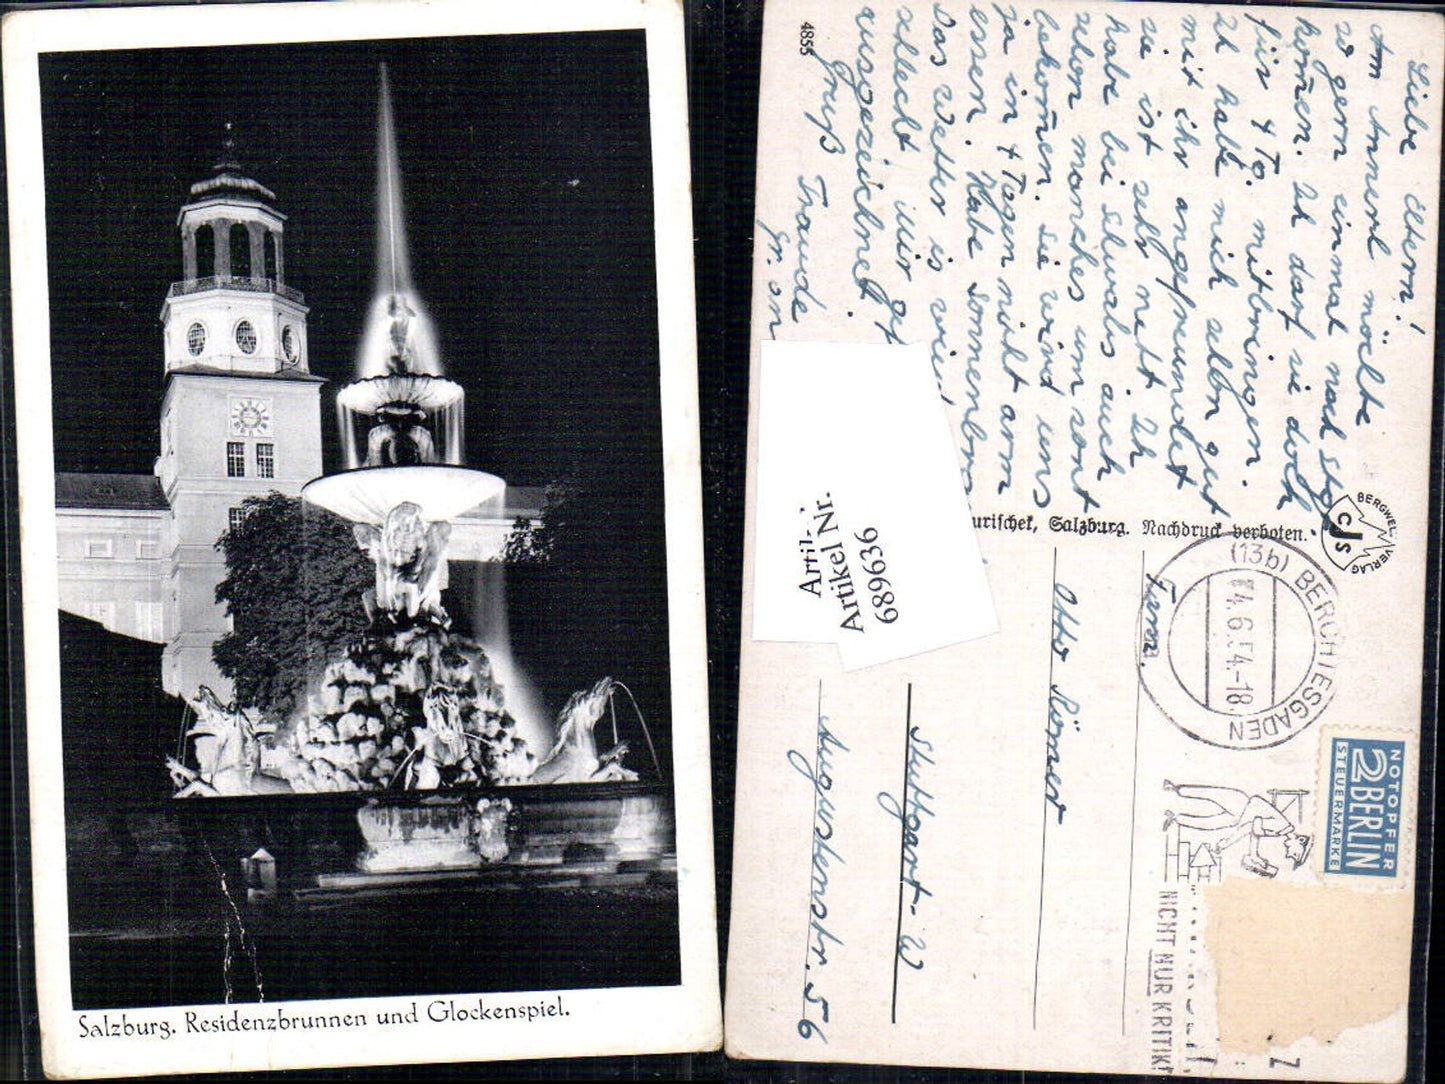 Salzburg. Residenzbrunnen und Glockenspiel.
4855
Liebe Eltern!
Am Annerl möchte
so gern einmal nach Stg.
kom̄en. Ich darf sie doch
für 4 Tg. mitbringen.
Ich habe mich selbn gut
mit ihr angefreundet
sie ist sehr nett. Ich
habe bei Schwabs auch
schon manches umsonst
bekom̄en. Sie wird uns
ja in 4 Tagen nicht arm
essen. Habe Sonnenbrand
Das Wetter is wied
schlecht. Mir gef
ausgezeichnet.
Gruß Traude
Gr. an
Artil-
Artikel Nr.
689636
urischek, Salzburg. Nachdruck verboten.
BERGWEL VERLAG
CJS
(13b) BERCHTESGADEN
4.6.54.-18
NOTOPFER
2 BERLIN
STEUERMARKE
NICHT NUR KRITIK
Z
Fam.
Otto Römer
Stuttgart-W
Augustenstr. 56